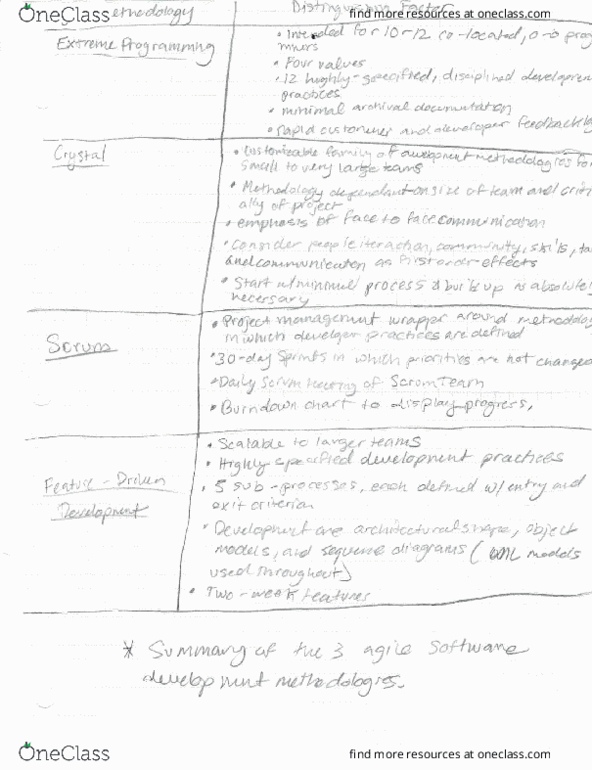 OneClass
find more resources at oneclass.com
Methodology
Distinguishing Factor
Extreme Programming
• Intended for 10-12 co-located, o-o prog
mmers
• Four values
• 12 highly-specified, disciplined developmen
practices
• minimal archival documentation
• rapid customer and developer feedback lo
Crystal
• Customizable family of development methodologies for
small to very large teams
• Methodology dependant on size of team and criti
ality of project
• emphasis of face to face communication
• Consider people iteraction, community, skills, ta
and communicaten as first order-effects
• Start w/ minimal process & build up as absolute
necesary
Scrum
• Project management wrapper around methodolog
in which developer practices are defined
• 30-day Sprints in which priorities are not changed
• Daily Scrum Meeting of Scrum Team
• Burndown chart to display progress,
Feature - Driven
Development
• Scalable to larger teams
• Highly specified development practices
• 5 sub-processes, each defined w/ entry and
exit criterian
• Development are architectural shape, object
models, and sequence diagrams ( UML models
used throughout)
• Two-week features
* Summary of the 3 agile Software
development methodologies.
OneClass
find more resources at oneclass.com